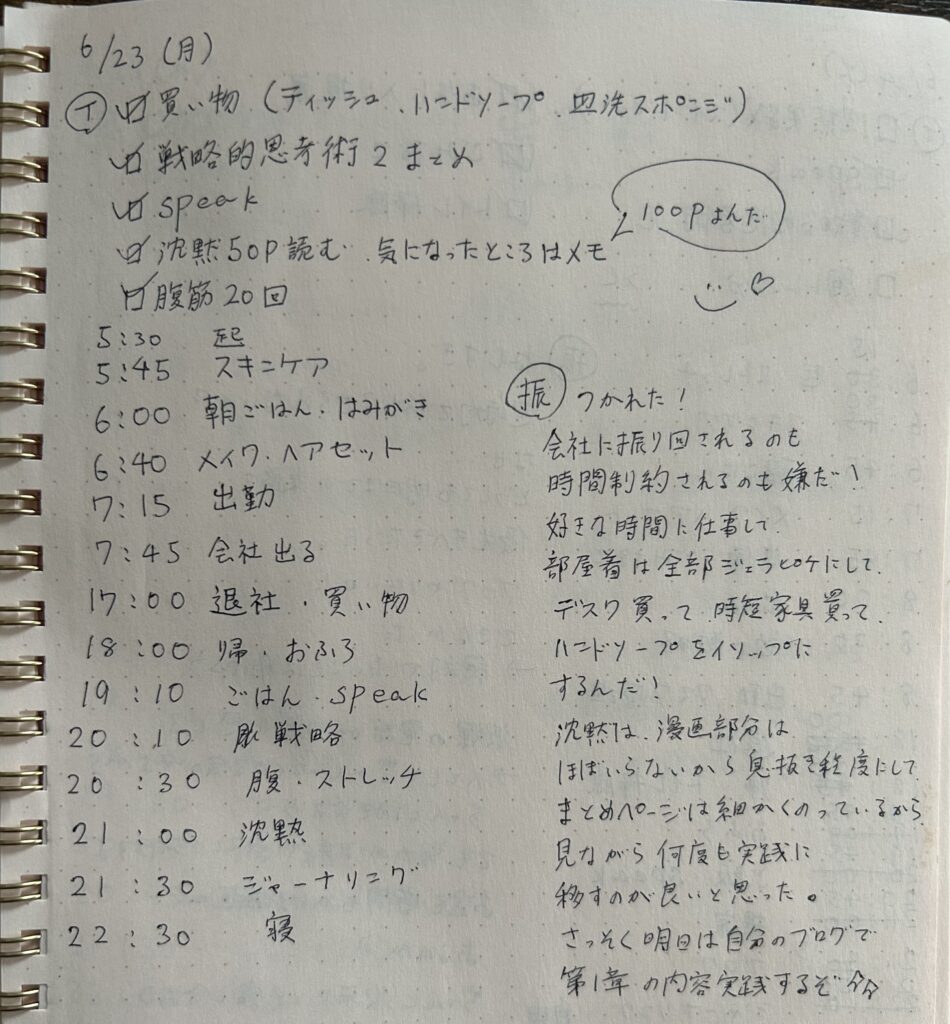 6/23 (月)
イ ☑ 買い物 (ティッシュ、ハンドソープ、皿洗スポンジ)
☑ 戦略的思考術2 まとめ
☑ speak
100Pよんだ
☑ 沈黙50P読む、気になったところはメモ
☑ 腹筋20回
5:30 起
5:45 スキンケア
6:00 朝ごはん・はみがき
6:40 メイク・ヘアセット
7:15 出勤
7:45 会社出る
17:00 退社・買い物
18:00 帰・おふろ
19:10 ごはん・speak
20:10 戦略
20:30 腹・ストレッチ
21:00 沈黙
21:30 ジャーナリング
22:30 寝
振 つかれた!
会社に振り回されるのも
時間制約されるのも嫌だ!
好きな時間に仕事して
部屋着は全部ジェラピケにして、
デスク買って、時短家具買って、
ハンドソープをイソップに
するんだ!
沈黙は、漫画部分は
ほぼいらないから息抜き程度にして
まとめページは細かくのっているから
見ながら何度も実践に
移すのが良いと思った。
さっそく明日は自分のブログで
第1章の内容実践するぞ